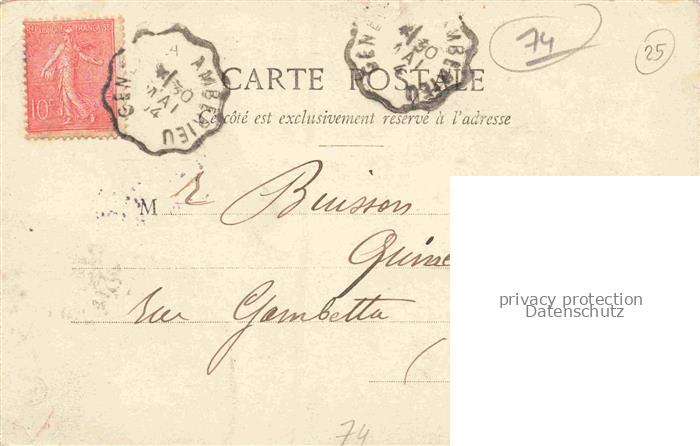 REPUBLIQUE FRANÇAISE
10c
GENEVE A AMBERIEU
30
MAI
04
GENE AMBERIEU
30
MAI
74
25
CARTE POSTALE
Ce côté est exclusivement réservé à l'adresse
M r Buisson
rue Gambetta
(
privacy protection
Datenschutz
74